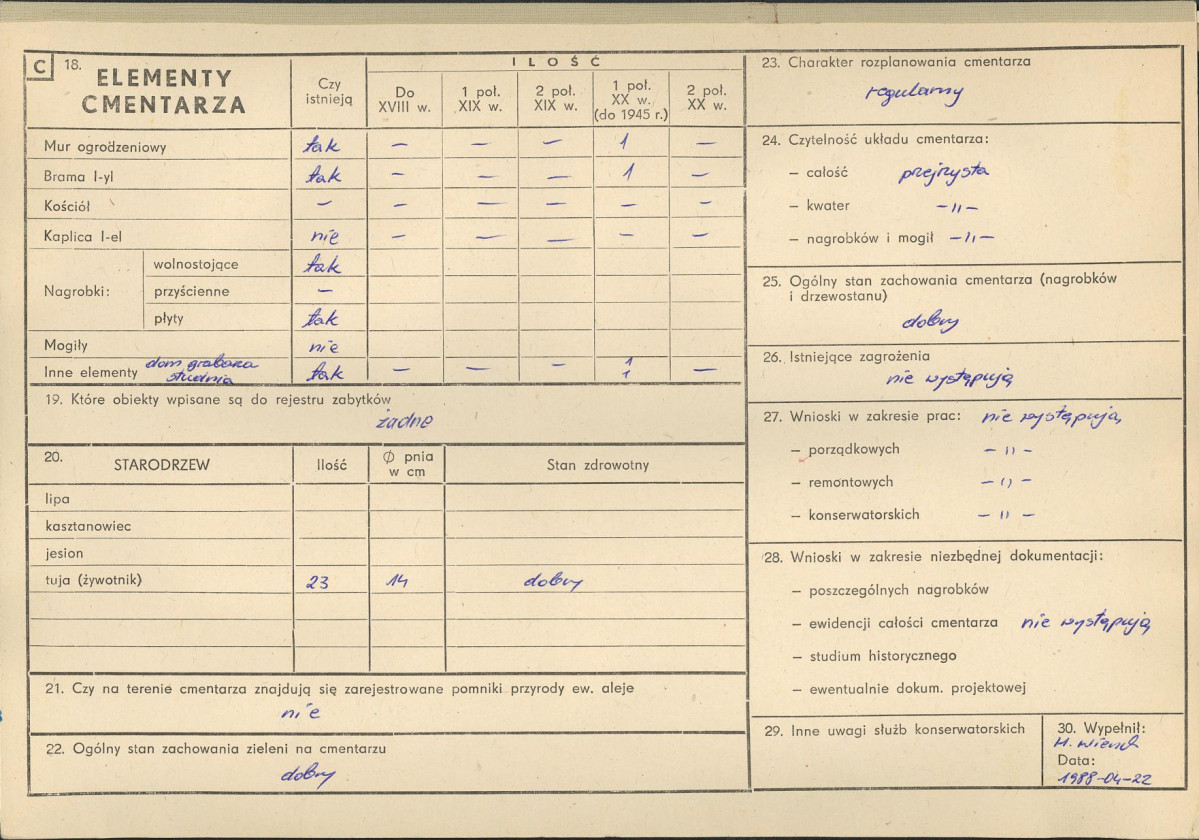 C 18. ELEMENTY CMENTARZA
Czy istnieją
ILOŚĆ
Do XVIII w.
1 poł. XIX w.
2 poł. XIX w.
1 poł. XX w. (do 1945 r.)
2 poł. XX w.
Mur ogrodzeniowy tak — — — 1 —
Brama I-yl tak — — — 1 —
Kościół — — — — — —
Kaplica I-el nie — — — — —
Nagrobki: wolnostojące tak
przyścienne —
płyty tak
Mogiły nie
Inne elementy dom grabarza studnia tak — — — 1 1 —
19. Które obiekty wpisane są do rejestru zabytków
żadne
20. STARODRZEW Ilość Ø pnia w cm Stan zdrowotny
lipa
kasztanowiec
jesion
tuja (żywotnik) 23 14 dobry
21. Czy na terenie cmentarza znajdują się zarejestrowane pomniki przyrody ew. aleje
nie
22. Ogólny stan zachowania zieleni na cmentarzu
dobry
23. Charakter rozplanowania cmentarza
regularny
24. Czytelność układu cmentarza:
— całość przejrzysta
— kwater —"—
— nagrobków i mogił —"—
25. Ogólny stan zachowania cmentarza (nagrobków
i drzewostanu)
dobry
26. Istniejące zagrożenia
nie występują
27. Wnioski w zakresie prac: nie występują
— porządkowych —"—
— remontowych —"—
— konserwatorskich —"—
28. Wnioski w zakresie niezbędnej dokumentacji:
— poszczególnych nagrobków
— ewidencji całości cmentarza nie występują
— studium historycznego
— ewentualnie dokum. projektowej
29. Inne uwagi służb konserwatorskich
30. Wypełnił:
H.
Data:
1988-04-22